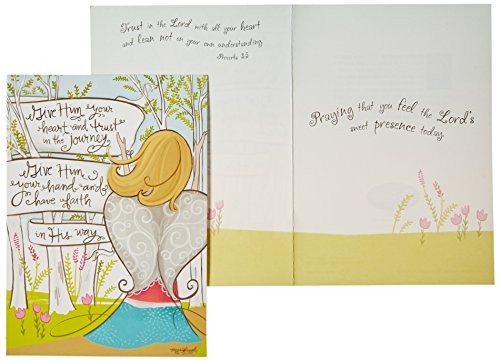 Give Him your
heart and trust
in the journey
Give Him
your hand and
have faith
in His way
Trust in the Lord with all your heart
and lean not on your own understanding.
Proverbs 3:5
Praying that you feel the Lord's
sweet presence today.